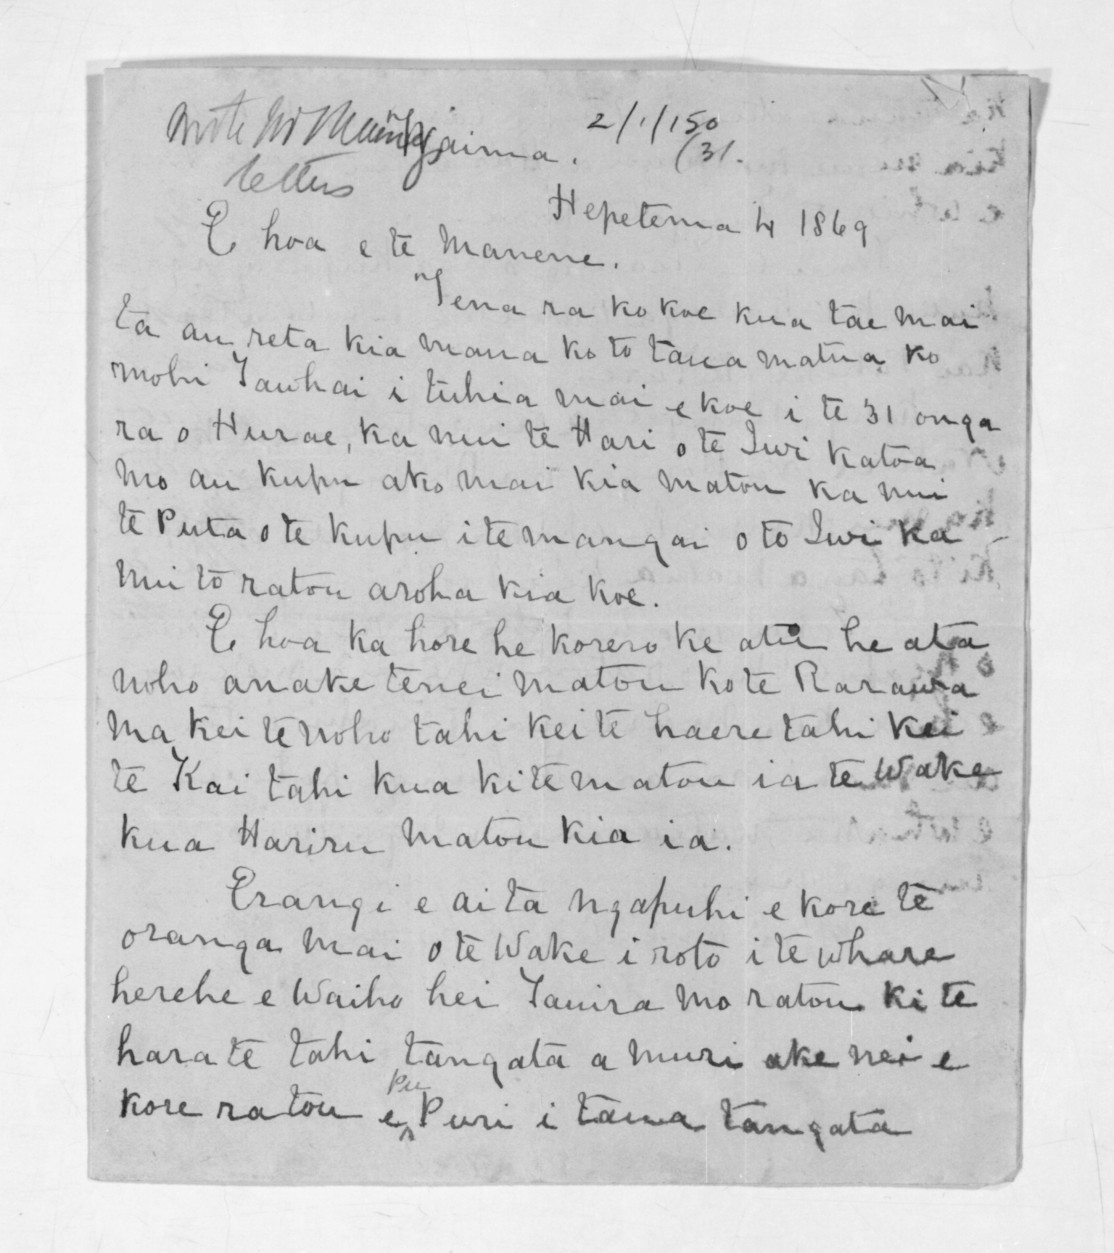 2/1/150
/31.
letters
Hepetema 4 1869
E hoa e te Manene.
Tena ra ko koe kua tae mai
ta au reta kia mana ko to taua matua ko
mohi Tawhai i tuhia mai e koe i te 31 onga
ra o Hurae, ka nui te Hari o te Iwi katoa
mo au kupu ako mai kia matou ka nui
te Puta o te kupu i te mangai o to Iwi ka
nui to ratou aroha kia koe.
E hoa ka hore he korero ke atu he ata
noho anake tenei matou ko te Rarawa
ma kei te noho tahi kei te haere tahi kei
te Kai tahi kua kite matou ia te Wake
kua Hariru matou kia ia.
Erangi e ai ta ngapuhi e kore te
oranga mai o te Wake i roto i te whare
herehe e Waiho hei Tauira mo ratou ki te
hara te tahi tangata a muri ake nei e
kore ratou e pu Puri i taua tangata